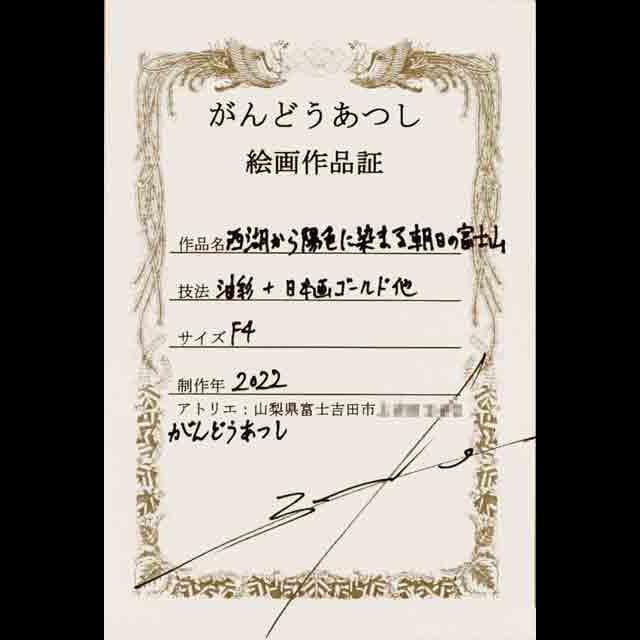 がんどうあつし
絵画作品証
作品名 西湖から陽色に染まる朝日の富士山
技法 油彩 + 日本画ゴールド他
サイズ F4
制作年 2022
アトリエ：山梨県富士吉田市
がんどうあつし